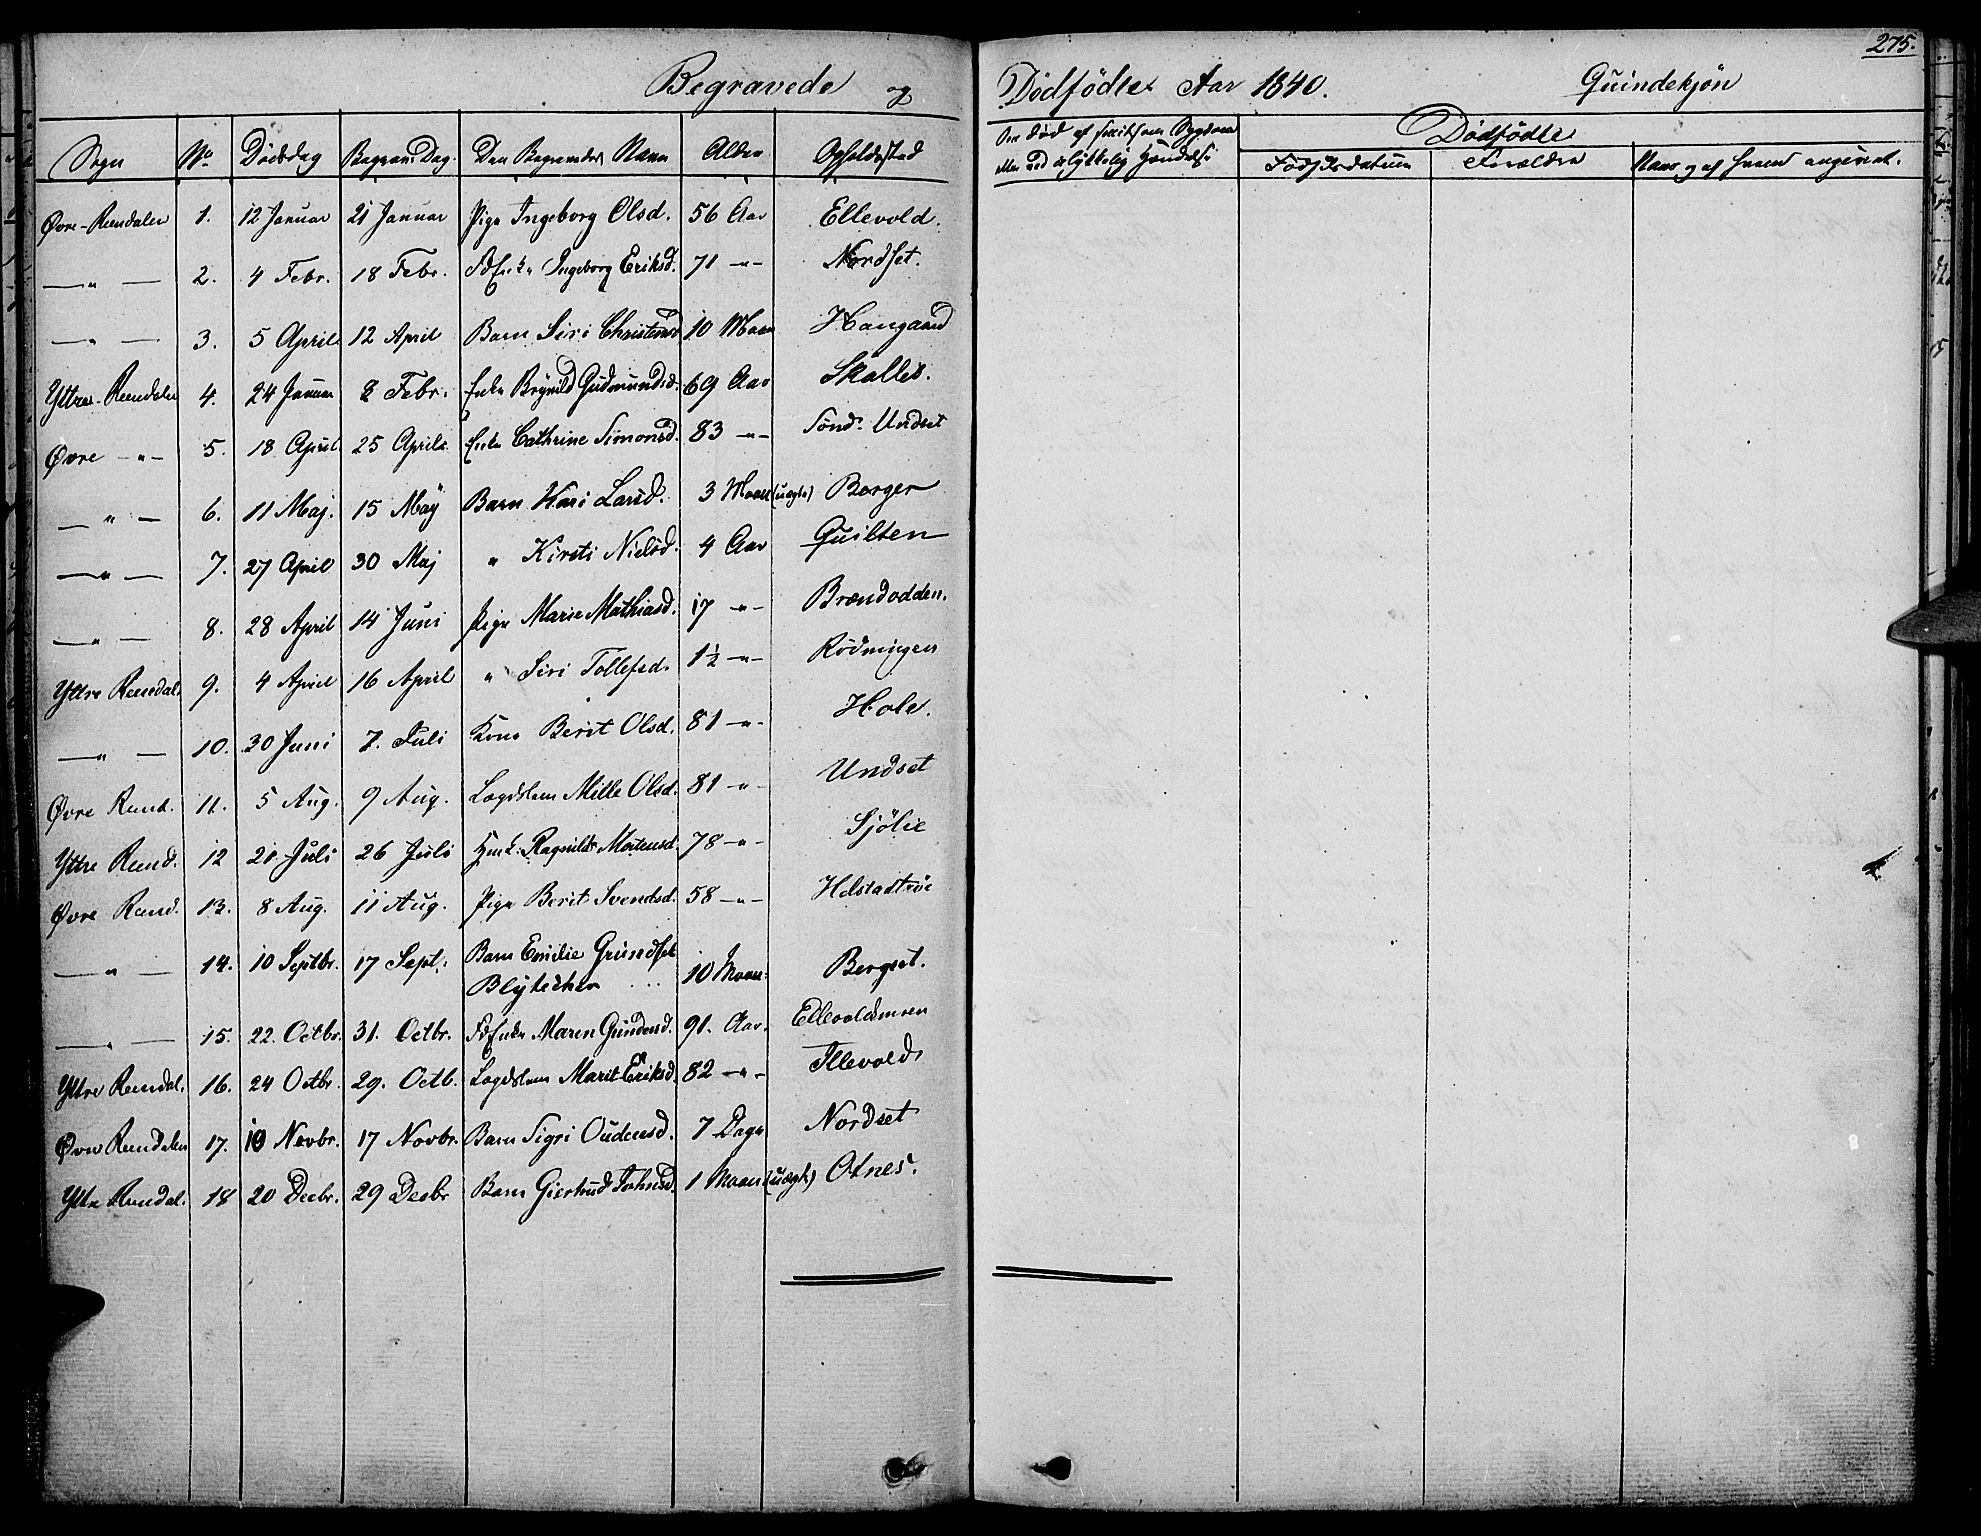 275.
Begravede og Dødfødte Aar 1840. Quindekjøn
Sogn No Dødsdag Begrav. Dag. Den Begravedes Navn Alder Opholdssted
Om død af smitsom Sygdom Dødfødte
eller ved ulykkelig Hændelse Fødselsdatum Forældre Naar og af hvem angivet.
Øvre-Rendalen 1. 12 Januar 21 Januar Pige Ingeborg Olsd. 56 Aar Ellevold.
—"— 2. 4 Febr. 18 Febr. Fdenke Ingeborg Eriksd. 71 -"- Nordset.
—"— 3. 5 April 12 April Barn Siri Christensd 10 Maan Haugaard
Yttre-Rendalen 4. 24 Januar 2 Febr. Enke Brynild Gudmundsd. 69 Aar Skallet.
Øvre -"- 5. 18 April 25 April Enke Cathrine Simonsd. 83 -"- Sönd. Undset
—"— 6. 11 Maj. 15 Maÿ Barn Kari Larsd. 3 Maan (uægte) Berger
—"— 7. 27 April 30 Maj " Kirsti Nielsd. 4 Aar Quilten
—"— 8. 28 April 14 Juni Pige Marie Mathiasd. 17 -"- Brændodden.
Yttre Rendal. 9. 4 April 16 April " Siri Tollefsd. 1½ -"- Rödningen
—"— 10. 30 Juni 7. Juli Kone Berit Olsd. 81 -"- Hole.
Øvre Rend. 11. 5 Aug. 9 Aug. Lægdslem Mille Olsd. 81 -"- Undset
Yttre Rend. 12 21. Juli 26 Juli Huusk. Ragnild Mortensd. 78 -"- Sjölie
Øvre Rend. 13. 8 Aug. 11 Aug. Pige Berit Svendsd. 58 -"- Helstadtröe
—"— 14. 10 Septbr. 17 Sept. Barn Emilie Grundset
Blytecker 10 Maan. Bergset.
—"— 15. 22. Octbr. 31. Octbr. Fdenke Maren Gundersd. 91. Aar. Ellevoldsmoen
Yttre Rendal. 16. 24 Octbr. 29. Octb. Lægdslem Marit Eriksd. 82 -"- Illevold
Øvre Rendalen 17. 10 Novbr. 17 Novbr. Barn Sigri Oudensd. 7 Dage Nordset
Yttre Rendal. 18 20 Decbr. 29 Decbr Barn Giertrud Johnsd. 1 Maan (uægte) Otnes.